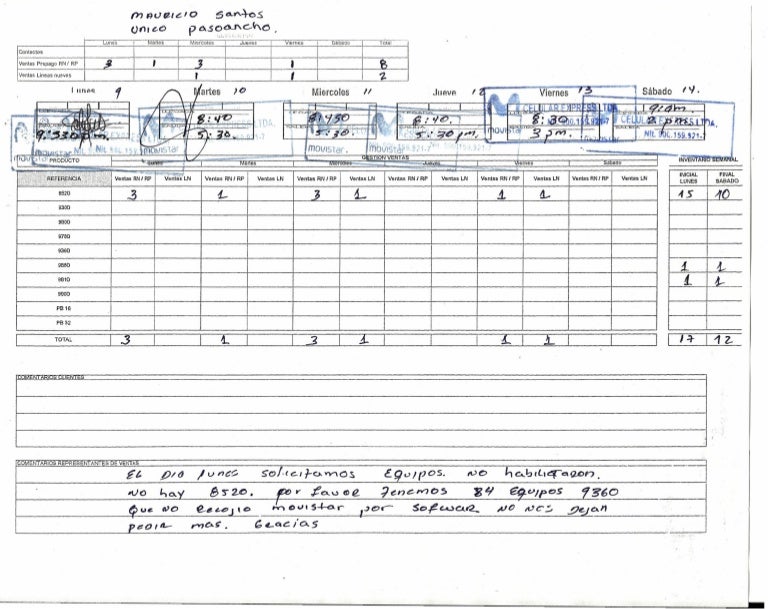 MAURICIO Santos
UNICO Pasoancho.
Lunes Martes Miercoles Jueves Viernes Sabado Total
Contactos
Ventas Prepago RN / RP 3 1 3 1 8
Ventas Lineas nuevas 1 1 2
Lunes 9 Martes 10 Miercoles 11 Jueve 12 Viernes 13 Sábado 14.
8:40 8:40. 8:30
5:30. 5:30 5:30 pm. 3 pm.
CELULAR EXPRESS LTDA.
movistar movistar movistar. movistar movistar
PRODUCTO GESTION VENTAS INVENTARIO SEMANAL
Lunes Martes Miercoles Jueves Viernes Sabado
REFERENCIA Ventas RN / RP Ventas LN Ventas RN / RP Ventas LN Ventas RN / RP Ventas LN Ventas RN / RP Ventas LN Ventas RN / RP Ventas LN Ventas RN / RP Ventas LN INICIAL LUNES FINAL SABADO
8520 3 1 3 1 1 1 15 10
9300
9800
9780
9360
9550 1 1
9810 1 1
9900
PB 16
PB 32
TOTAL 3 1 3 1 1 1 17 12
COMENTARIOS CLIENTES
COMENTARIOS REPRESENTANTES DE VENTAS
EL DIA lunes solicitamos Equipos. no habilitaron.
No hay 8520. por favor Tenemos 84 Equipos 9360
Que no recojio movistar por sofwar NO NOS Dejan
pedir mas. Gracias